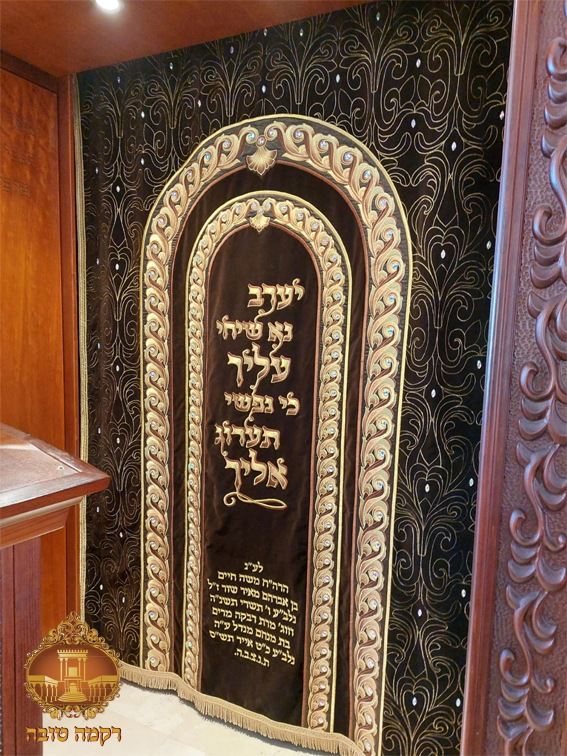 יערב
נא שיחי
עליך
כי נפשי
תערוג
אליך
לע"נ
הרה"ח משה חיים
בן אברהם מאיר שור ז"ל
נלב"ע ו' תשרי תשנ"ה
וזוג' מרת רבקה מרים
בת מנחם מנדל ע"ה
נלב"ע כ"ט אייר תש"ס
ת.נ.צ.ב.ה.
רקמה טובה